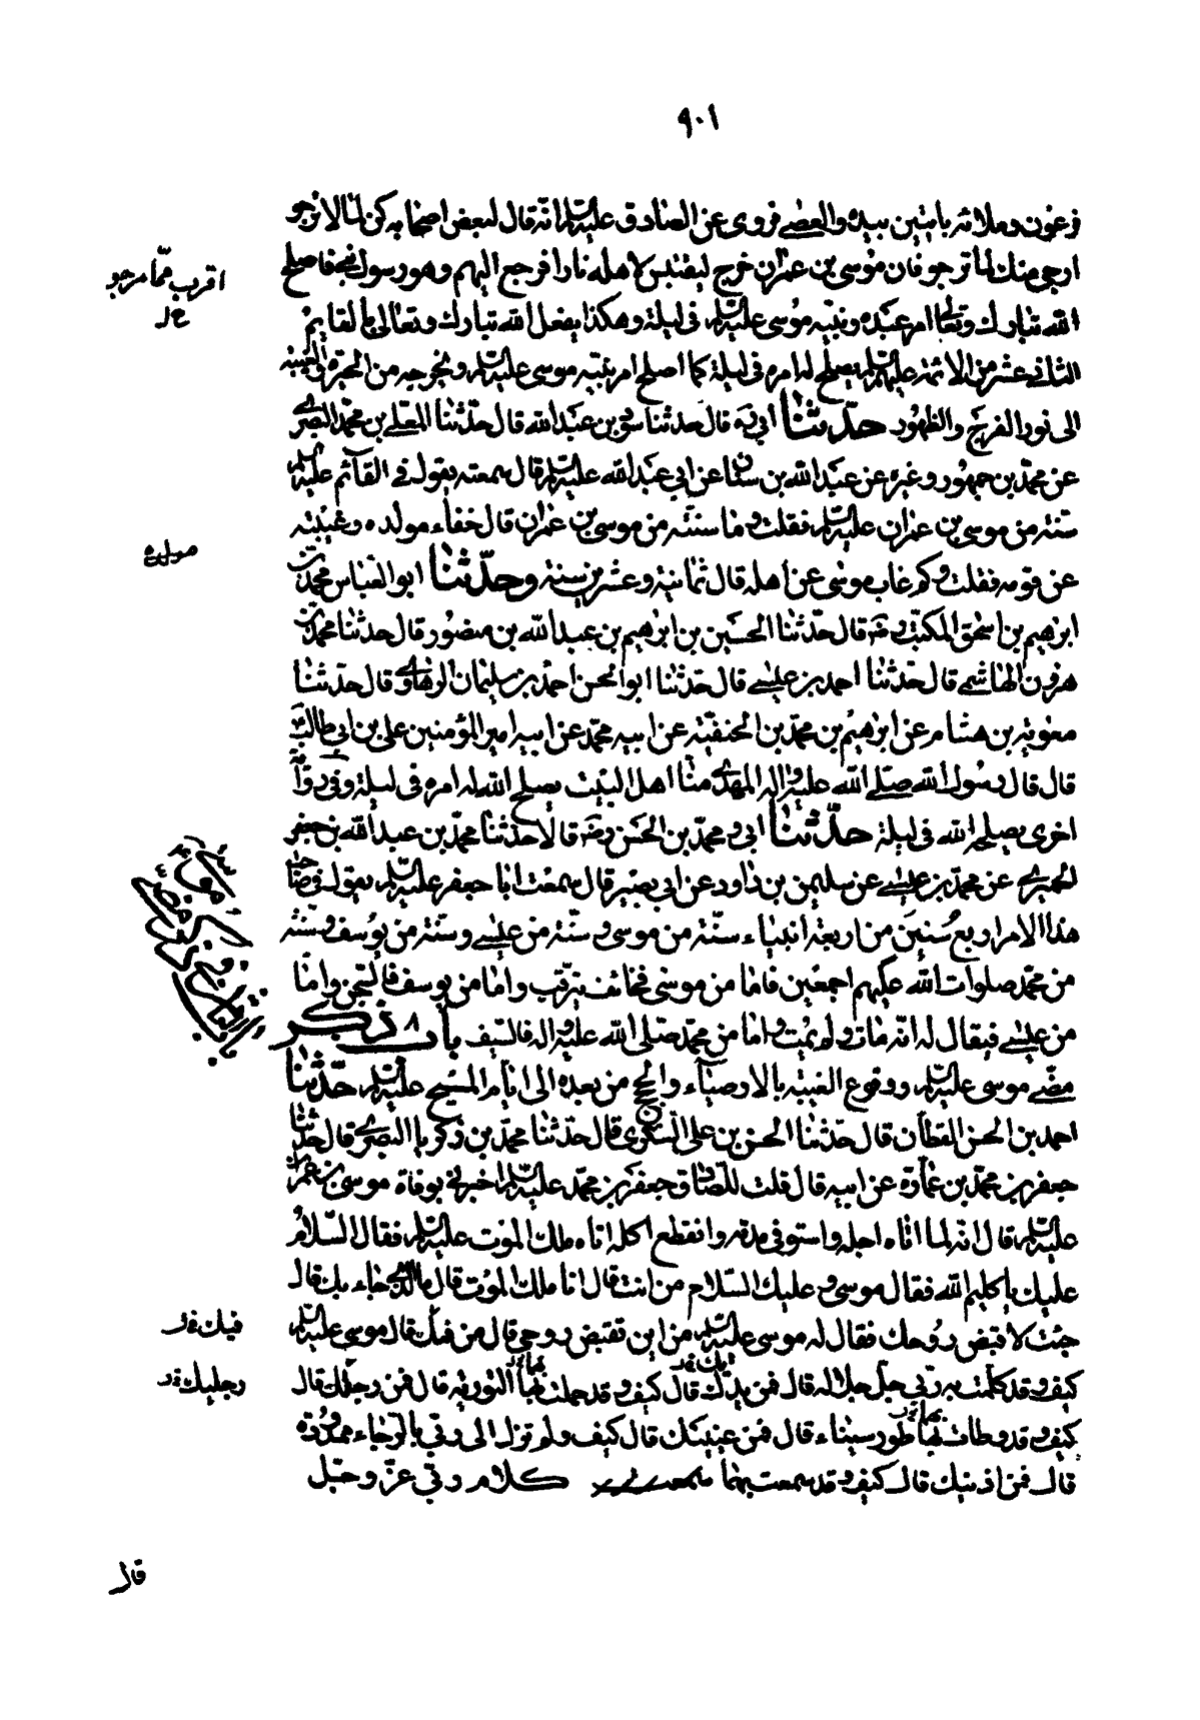 ٩٠١
فرعون وملائه بايتين بيده والعصى فروى عن الصادق عليه السلم انه قال لبعض اصحابه كن لما لا ترجو
ارجى منك لما ترجو فان موسى بن عمران خرج ليقتبس لاهله نارا فرجع اليهم وهو رسول نبى فاصلح
اقرب مما ترجو
خ ل
الله تبارك وتعالى امر عبده ونبيه موسى عليه السلم فى ليلة وهكذا يفعل الله تبارك وتعالى بالقايم
الثانى عشر من الائمة عليهم السلم يصلح له امره فى ليلة كما اصلح امر نبيه موسى عليه السلم ويخرجه من الحيرة والغيبة
الى نور الفرج والظهور حدثنا ابى ره قال حدثنا سعد بن عبد الله قال حدثنا المعلى بن محمد البصرى
عن محمد بن جمهور وغيره عن عبد الله بن سنان عن ابى عبد الله عليه السلم قال سمعته يقول فى القآئم عليه السلم
سنة من موسى بن عمران عليه السلم فقلت وما سنته من موسى بن عمران قال خفاء مولده وغيبته
مولده
عن قومه فقلت وكم غاب موسى عن اهله قال ثمانية وعشرين سنة وحدثنا ابو العباس محمد بن
ابرهيم بن اسحق المكتب رضه قال حدثنا الحسين بن ابرهيم بن عبد الله بن منصور قال حدثنا محمد بن
هرون الهاشمى قال حدثنا احمد بن عيسى قال حدثنا ابو الحسن احمد بن سليمان الرهاوى قال حدثنا
معوية بن هشام عن ابرهيم بن محمد بن الحنفية عن ابيه محمد عن ابيه امير المؤمنين على بن ابى طالب ع
قال قال رسول الله صلى الله عليه واله المهدى منا اهل البيت يصلح الله له امره فى ليلة وفى رواية
اخرى يصلحه الله فى ليلة حدثنا ابى ومحمد بن الحسن رضه قالا حدثنا محمد بن عبد الله بن جعفر
الحميرى عن محمد بن عيسى عن سليمن بن داود عن ابى بصير قال سمعت ابا جعفر عليه السلم يقول فى صاحب
هذا الامر اربع سنين من اربعة انبياء سنة من موسى وسنة من عيسى وسنة من يوسف وسنة
من محمد صلوات الله عليهم اجمعين فاما من موسى فخائف يترقب واما من يوسف فالسجن واما
من عيسى فيقال له انه مات ولم يمت واما من محمد صلى الله عليه واله فالسيف باب ٨ ذكر
مضى موسى عليه السلم ووقوع الغيبة بالاوصيآء والحجج من بعده الى ايام المسيح عليه السلم حدثنا
احمد بن الحسن القطان قال حدثنا الحسن بن على السكرى قال حدثنا محمد بن زكريا البصرى قال حدثنا
جعفر بن محمد بن عمارة عن ابيه قال قلت للصادق جعفر بن محمد عليه السلم اخبرنى بوفاة موسى بن عمران
عليه السلم قال انه لما اتاه اجله واستوفى مدته وانقطع اكله اتاه ملك الموت عليه السلم فقال السلام
عليك يا كليم الله فقال موسى وعليك السلام من انت قال انا ملك الموت قال ما الذى جاء بك قال
جئت لاقبض روحك فقال له موسى عليه السلم من اين تقبض روحى قال من فمك قال موسى عليه السلم
فيك خ ل
كيف وقد كلمت به ربى جل جلاله قال فمن يدك قال كيف وقد حملت بهما التورية قال فمن رجلك قال
يديك خ ل
رجليك خ ل
كيف وقد وطات بهما طور سيناء قال فمن عينيك قال كيف ولم تزل الى ربى بالرجاء ممدودة
قال فمن اذنيك قال كيف وقد سمعت بهما كلام ربى عز وجل
قال